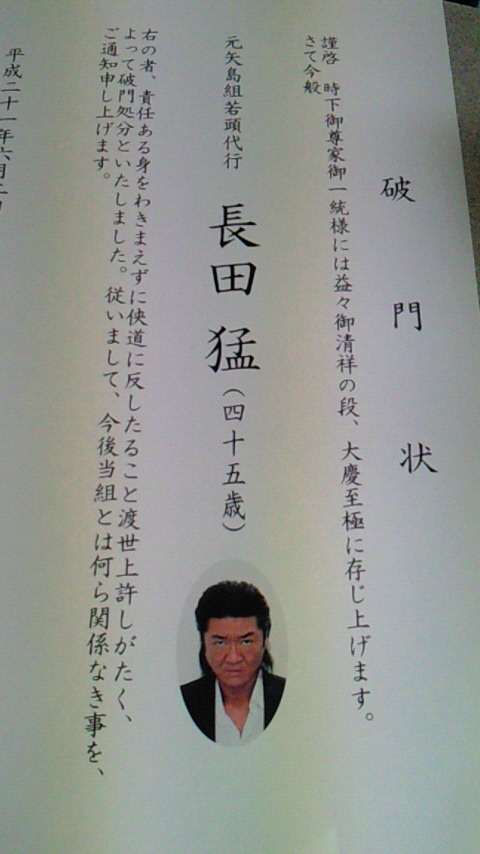 破門状
謹啓 時下御尊家御一統様には益々御清祥の段、大慶至極に存じ上げます。
さて今般
元矢島組若頭代行
長田猛(四十五歳)
右の者、責任ある身をわきまえずに侠道に反したること渡世上許しがたく、
よって破門処分といたしました。従いまして、今後当組とは何ら関係なき事を、
ご通知申し上げます。
平成二十一年六月